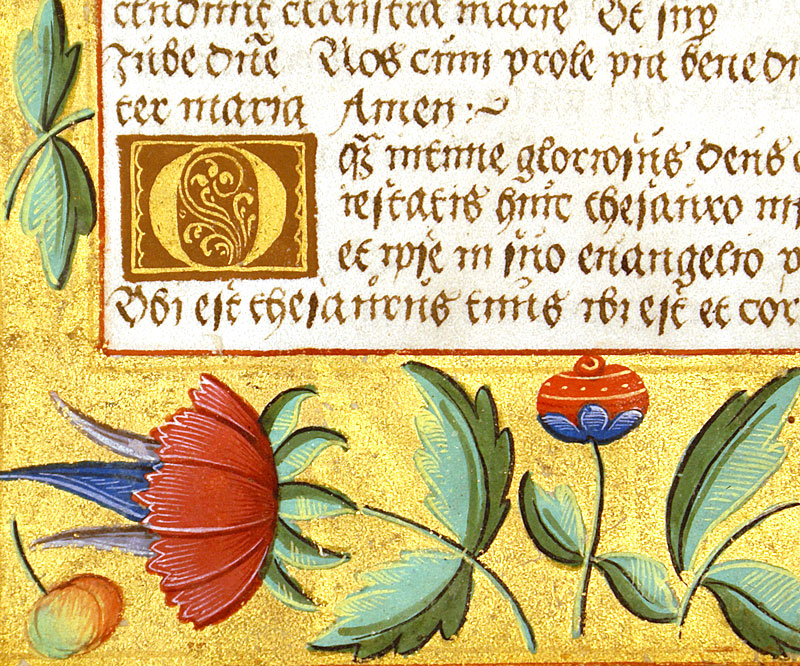 cendimit claustra marie Et sup
Jube dn̄e Nos cum prole pia benedi
cer maria Amen :~
O qz̄ intime gloriosus deus
iestatis huic thesauro
et ipse in suo euangelio
Vbi est thesaurus tuus ibi est et cor